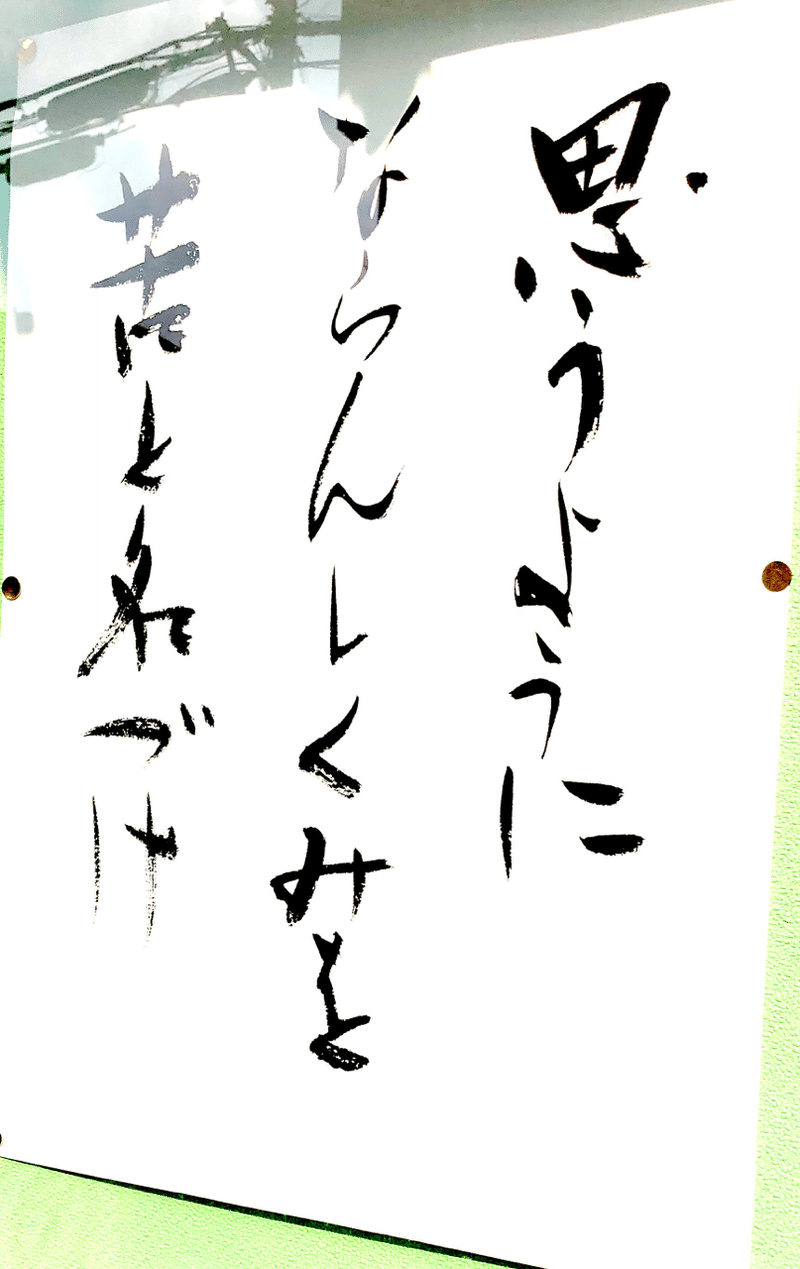 思いうように
ならんしくみを
苦と名づけ